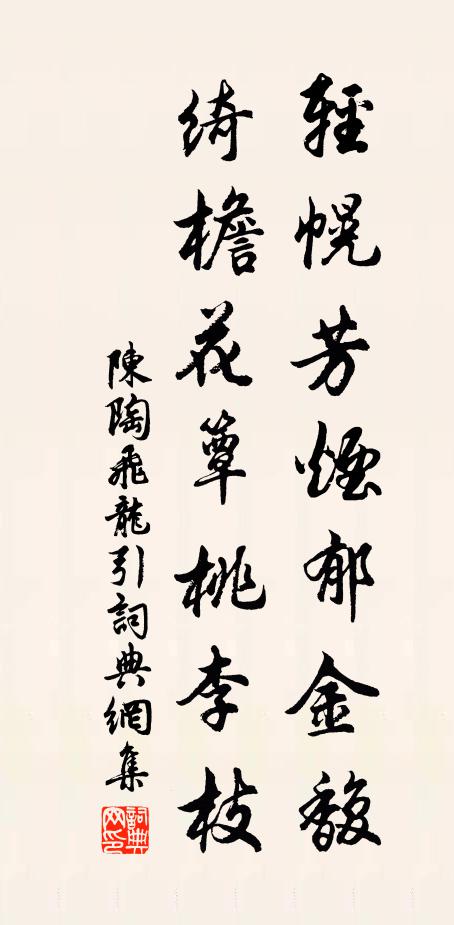 輕幌芳煙郁金馥
綺檐花簟桃李枝
陳陶飛龍引詞典網集
詞典网印